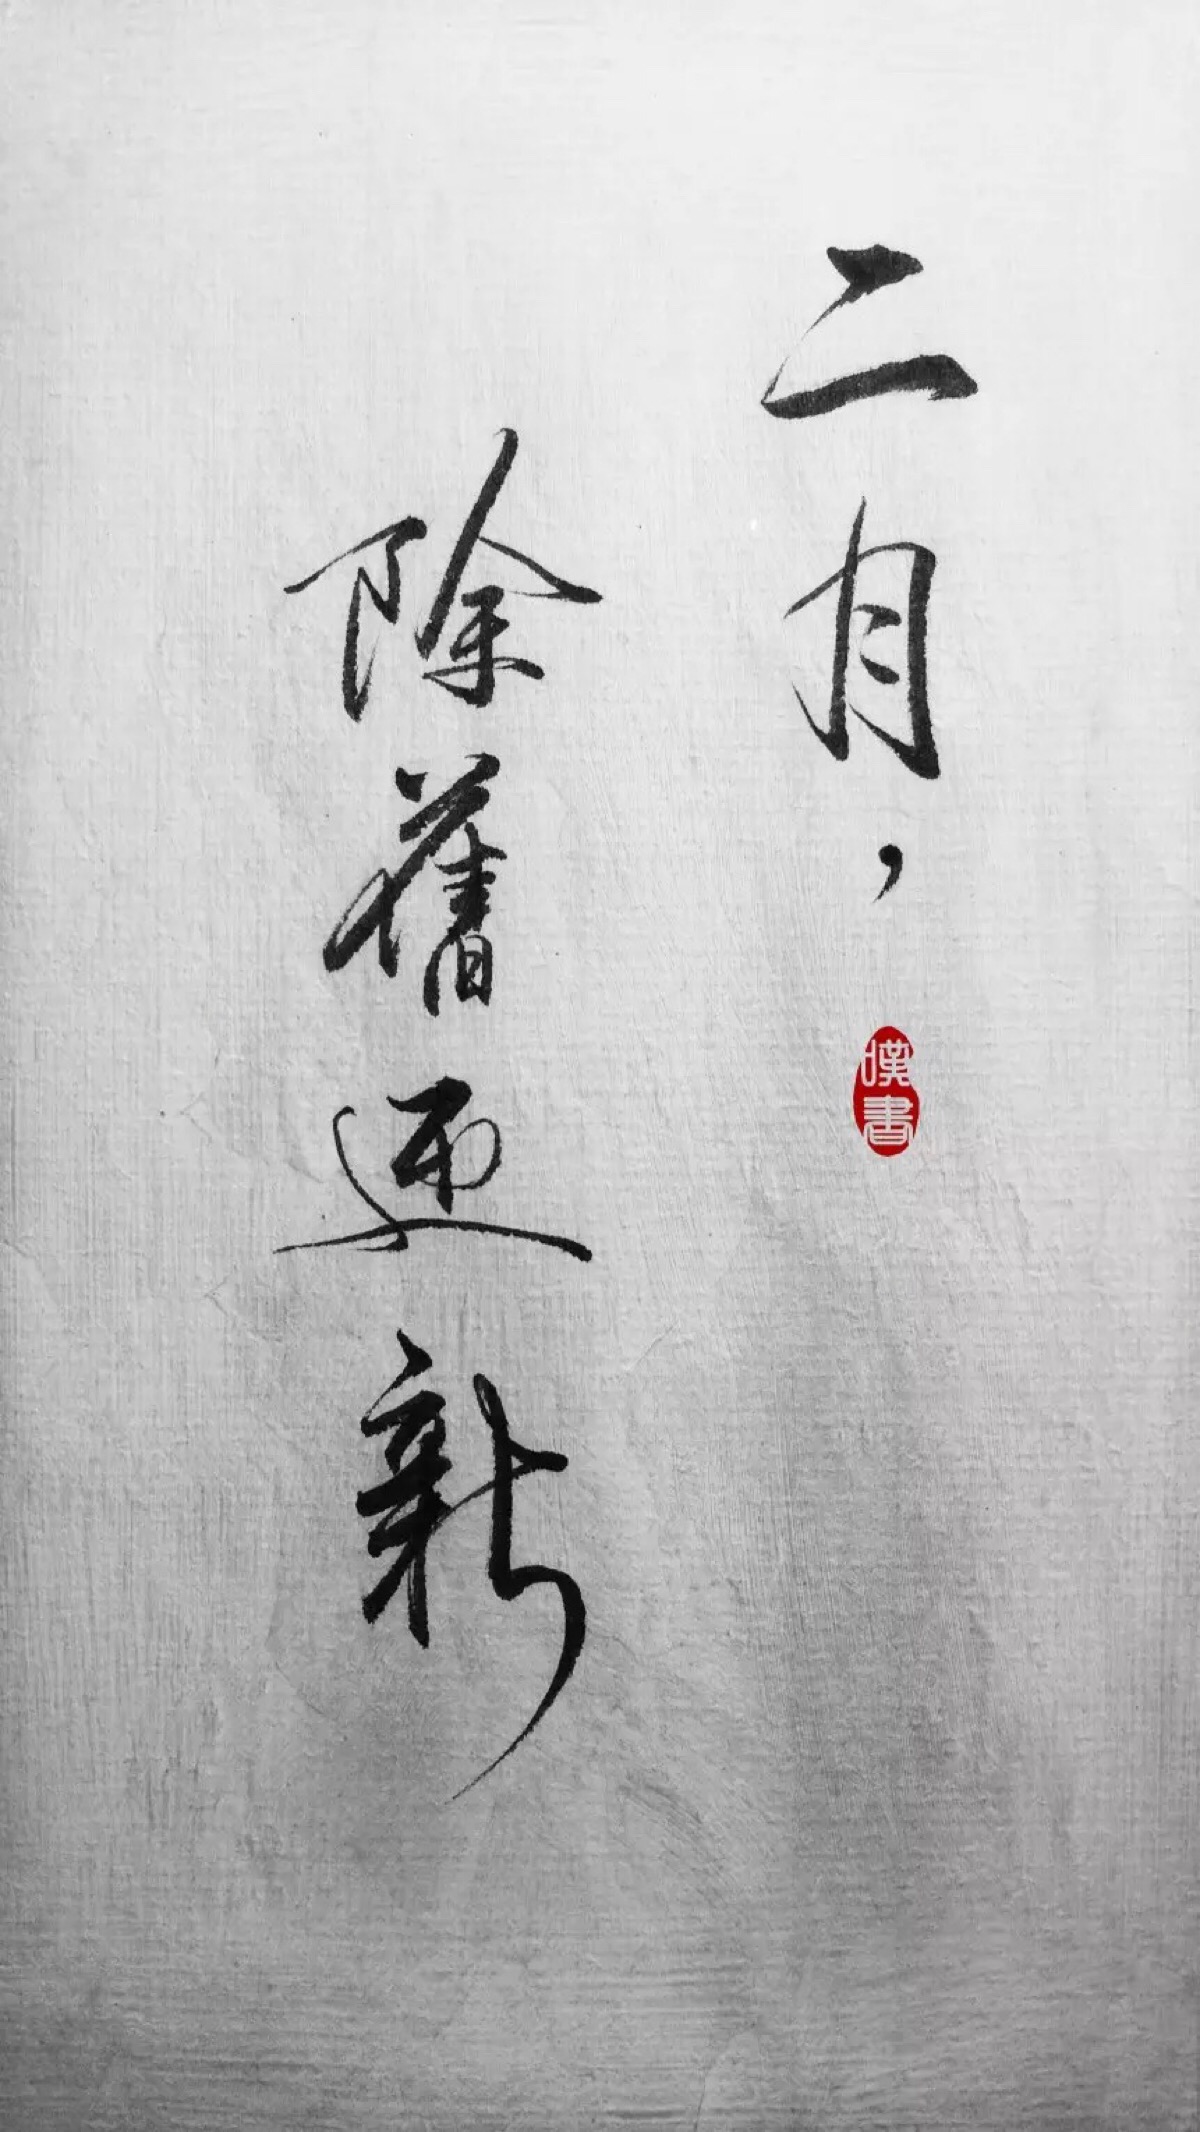 二月，
除舊迎新
嘆書